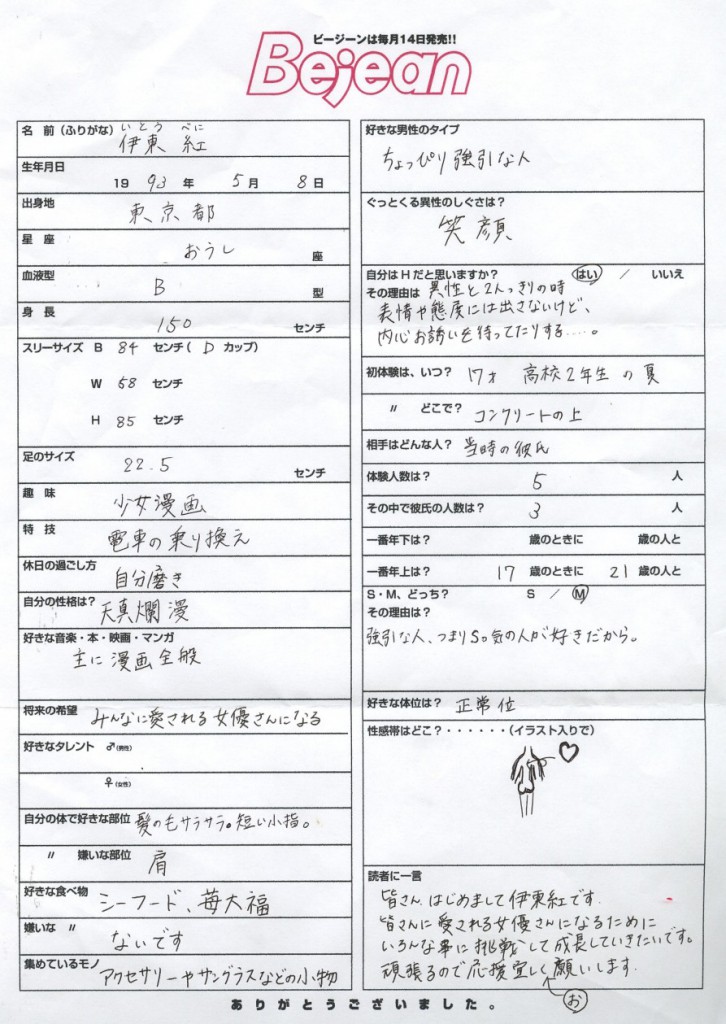 ビージーンは毎月14日発売!!
Bejean
名 前(ふりがな) いとう べに
伊東 紅
生年月日
19 93 年 5 月 8 日
出身地
東京都
星 座
おうし 座
血液型
B 型
身 長
150 センチ
スリーサイズ B 84 センチ( D カップ)
W 58 センチ
H 85 センチ
足のサイズ
22.5 センチ
趣 味
少女漫画
特 技
電車の乗り換え
休日の過ごし方
自分磨き
自分の性格は?
天真爛漫
好きな音楽・本・映画・マンガ
主に漫画全般
将来の希望 みんなに愛される女優さんになる
好きなタレント ♂(男性)
♀(女性)
自分の体で好きな部位 髪の毛サラサラ。短い小指。
〃 嫌いな部位 肩
好きな食べ物
シーフード、苺大福
嫌いな 〃
ないです
集めているモノ アクセサリーやサングラスなどの小物
好きな男性のタイプ
ちょっぴり強引な人
ぐっとくる異性のしぐさは?
笑顔
自分はHだと思いますか? はい / いいえ
その理由は 異性と2人っきりの時
表情や態度には出さないけど、
内心お誘いを待ってたりする……。
体験人数は? 5 人
その中で彼氏の人数は? 3 人
一番年下は? 歳のときに 歳の人と
S・M、どっち? S / M
その理由は?
強引な人、つまりSっ気の人が好きだから。
好きな体位は? 正常位
性感帯はどこ?・・・・・・(イラスト入りで)
読者に一言
皆さん はじめまして伊東紅です。
皆さんに愛される女優さんになるために
いろんな事に挑戦して成長していきたいです。
頑張るので応援宜しくお願いします。
ありがとうございました。